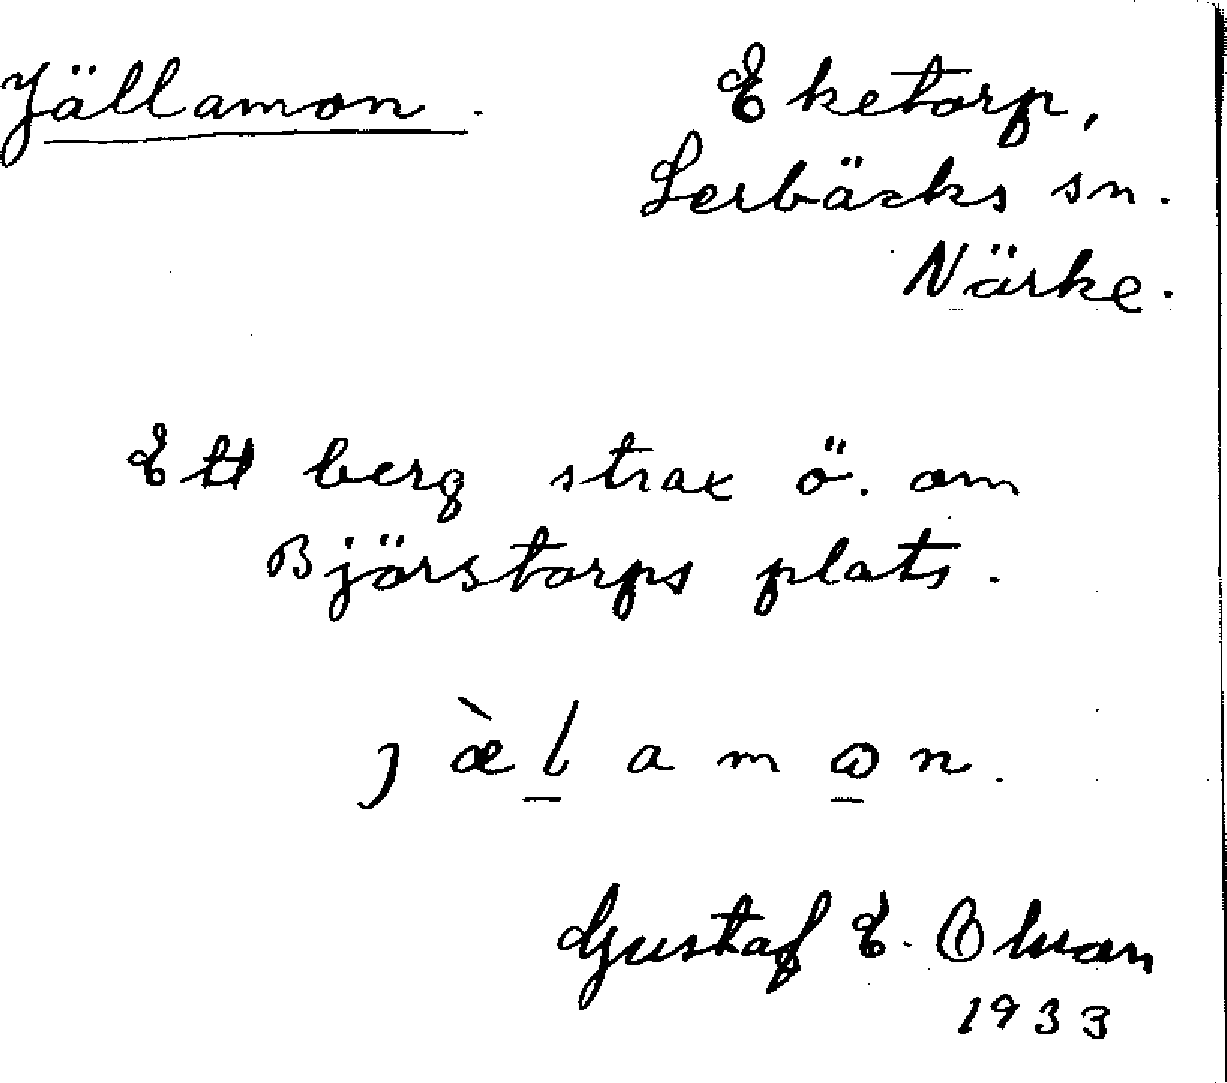 Jällamon.
Eketorp,
Lerbäcks sn.
Närke.
Ett berg strax ö. om
Björstorps plats.
j æ̀ l a m ω n.
Gustaf E. Olsson
1933